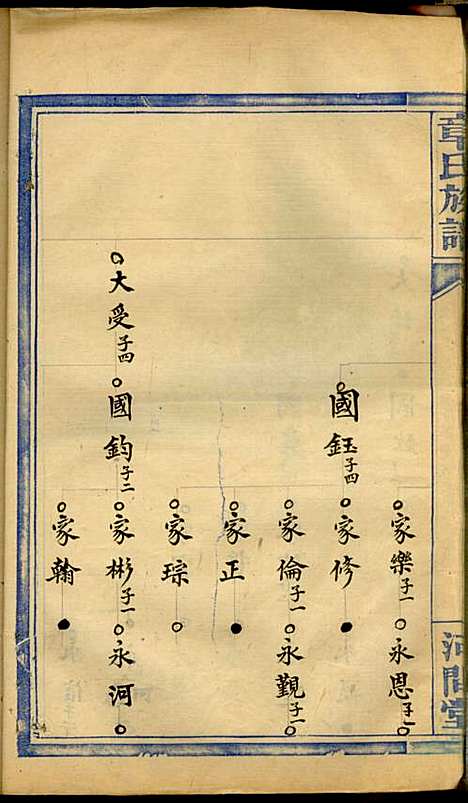 章氏族譜
河間堂
國鈺子四
家樂子一
永恩子一
家修
家倫子一
永觀子一
家正
大受子四
國鈞子二
家琮
家彬子一
永河
家翰